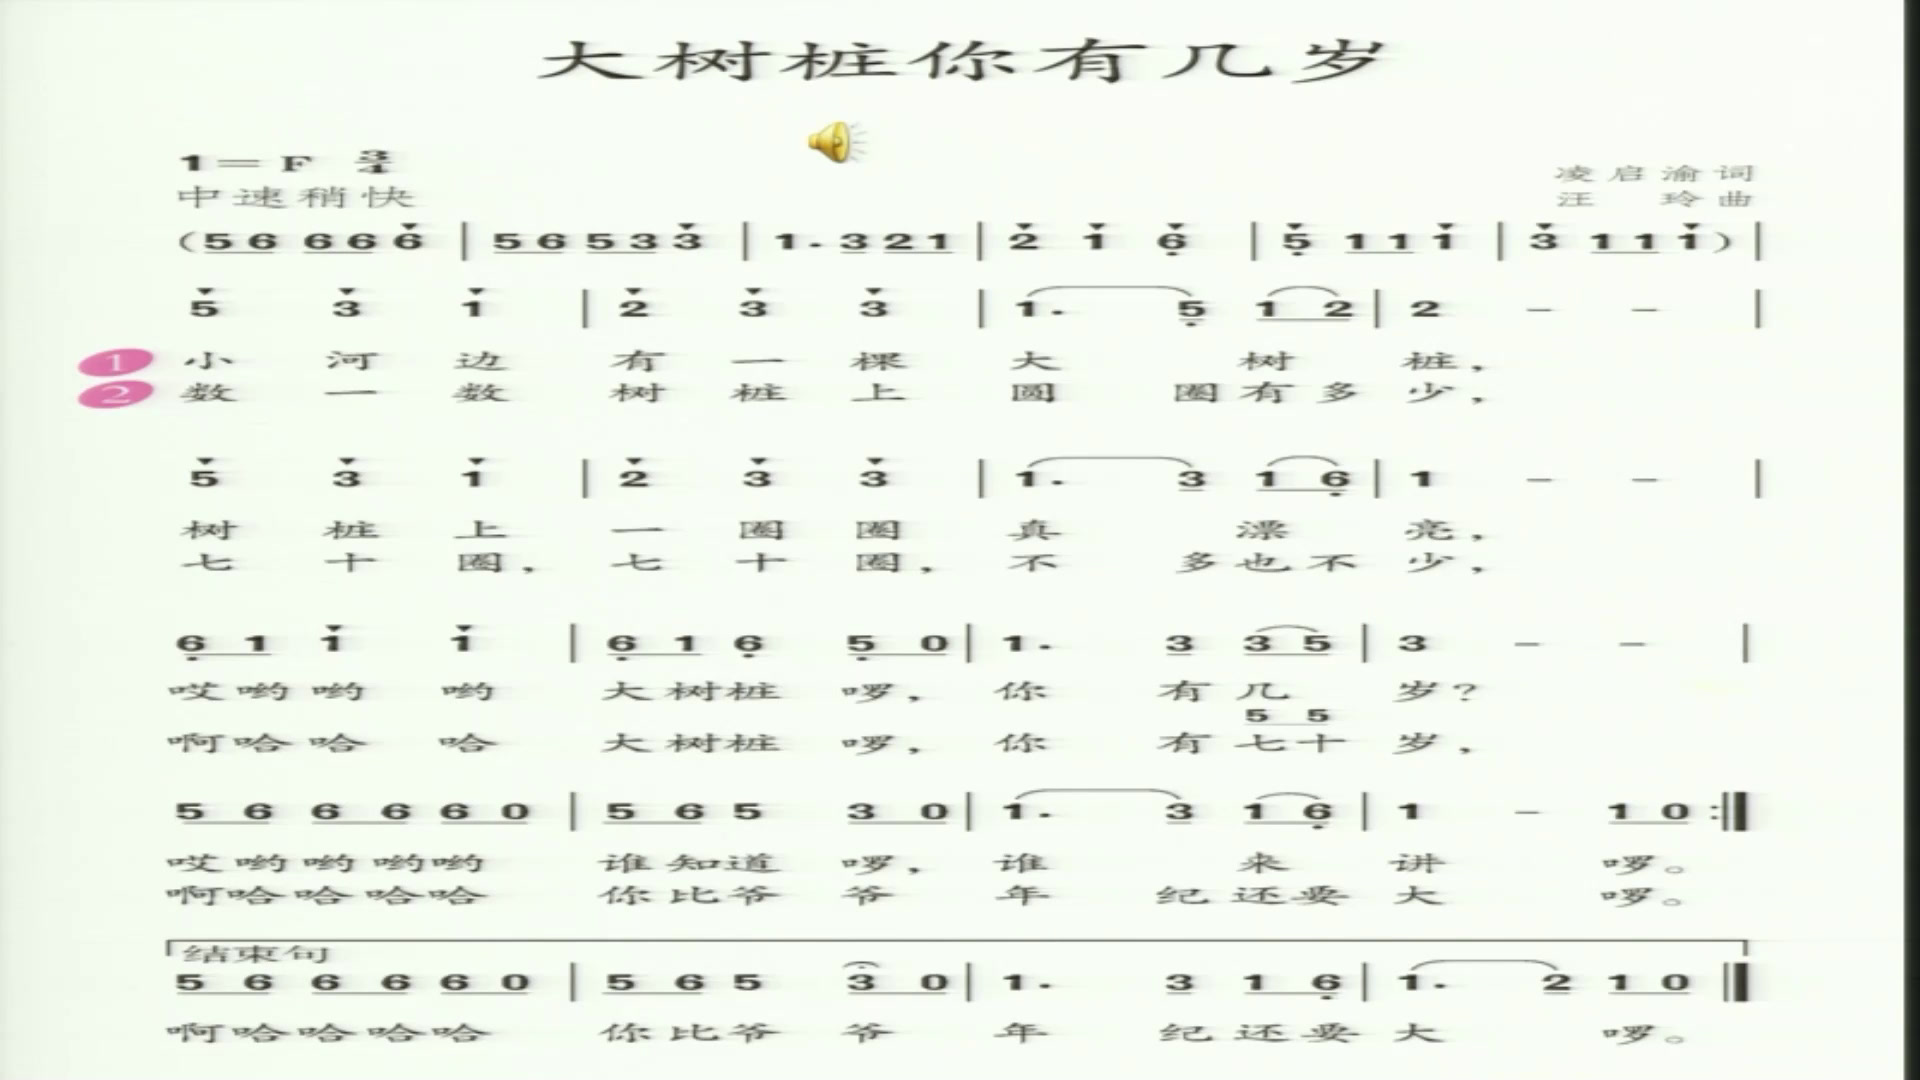 大树桩你有几岁
1=F 3/4
中速稍快
凌启渝词
汪 玲曲
(56 666 | 56 533 | 1.321 | 2 1 6 | 5 111 | 3 111) |
5 3 1 | 2 3 3 | 1. 5 1 2 | 2 - - |
1 小河边有一棵大树桩，
2 数一数树桩上圆圈有多少，
5 3 1 | 2 3 3 | 1. 3 1 6 | 1 - - |
树桩上一圈圈真漂亮，
七十圈，七十圈，不多也不少，
6 1 1 1 | 6 1 6 5 0 | 1. 3 3 5 | 3 - - |
哎哟哟哟大树桩啰，你有几岁？
5 5
啊哈哈哈大树桩啰，你有七十岁，
5 6 6 6 6 0 | 5 6 5 3 0 | 1. 3 1 6 | 1 - 1 0 :|
哎哟哟哟哟谁知道啰，谁来讲啰。
啊哈哈哈哈你比爷爷年纪还要大啰。
结束句
5 6 6 6 6 0 | 5 6 5 3 0 | 1. 3 1 6 | 1. 2 1 0 ‖
啊哈哈哈哈你比爷爷年纪还要大啰。